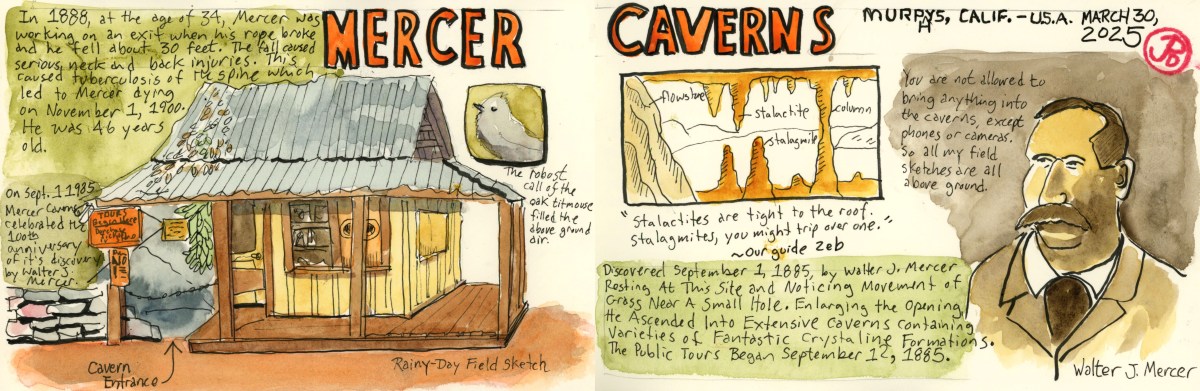 MERCER
In 1888, at the age of 34, Mercer was
working on an exit when his rope broke
and he fell about 30 feet. The fall caused
serious neck and back injuries. This
caused tuberculosis of the spine which
led to Mercer dying
on November 1, 1900.
He was 46 years
old.
On Sept. 1 1985
Mercer Caverns
celebrated the
100th
anniversary
of it's discovery
by Walter J.
Mercer.
TOURS
Begin Here
Cavern
Entrance
The robost
call of the
oak titmouse
filled the
above ground
air.
Rainy-Day Field Sketch
CAVERNS
MURPHYS, CALIF. - U.S.A. MARCH 30,
2025
JPB
flowstone
stalactite
column
stalagmite
"Stalactites are tight to the roof.
Stalagmites, you might trip over one."
~Our guide Zeb
You are not allowed to
bring anything into
the caverns, except
phones or cameras.
So all my field
sketches are all
above ground.
Discovered September 1, 1885, by Walter J. Mercer
Rosting At This Site and Noticing Movement of
Grass Near A Small Hole. Enlarging the Opening,
He Ascended Into Extensive Caverns Containing
Varieties of Fantastic Crystaline Formations.
The Public Tours Began September 12, 1885.
Walter J. Mercer